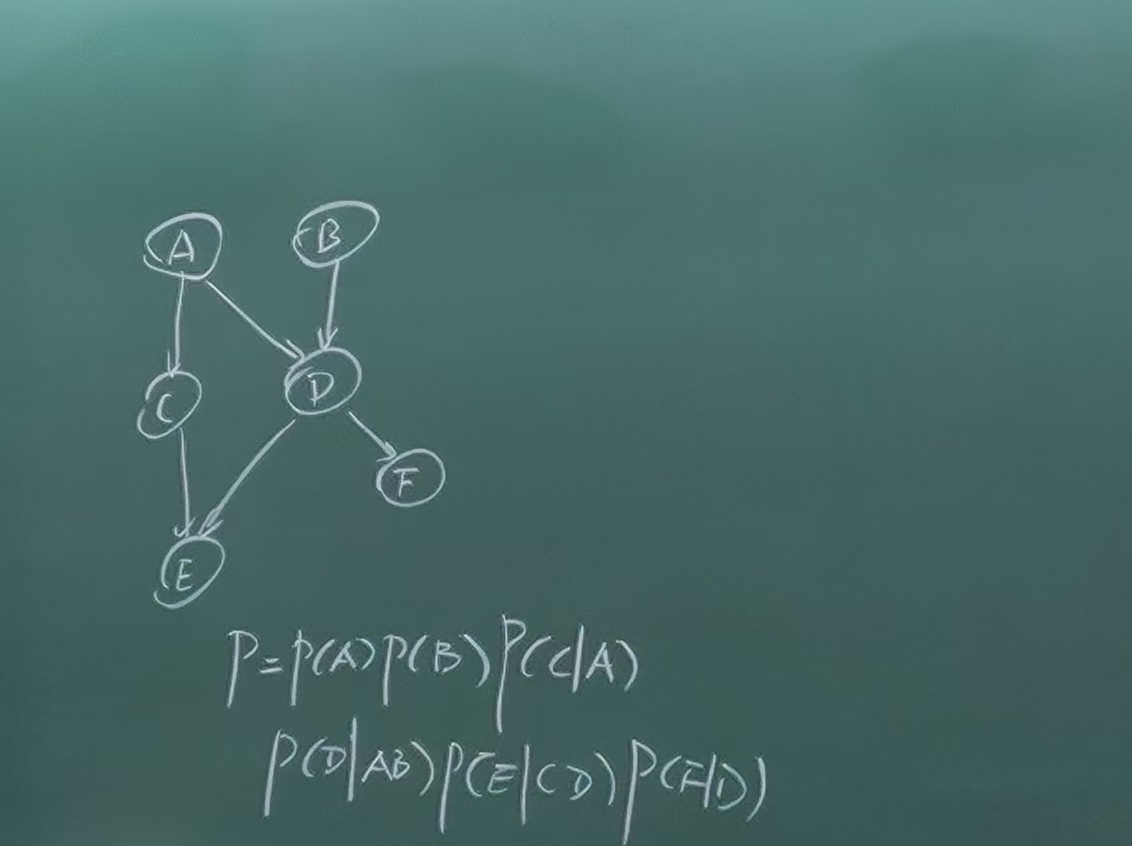 A B
C D
F
E
P=P(A)P(B)P(C|A)
P(D|AB)P(E|CD)P(F|D)